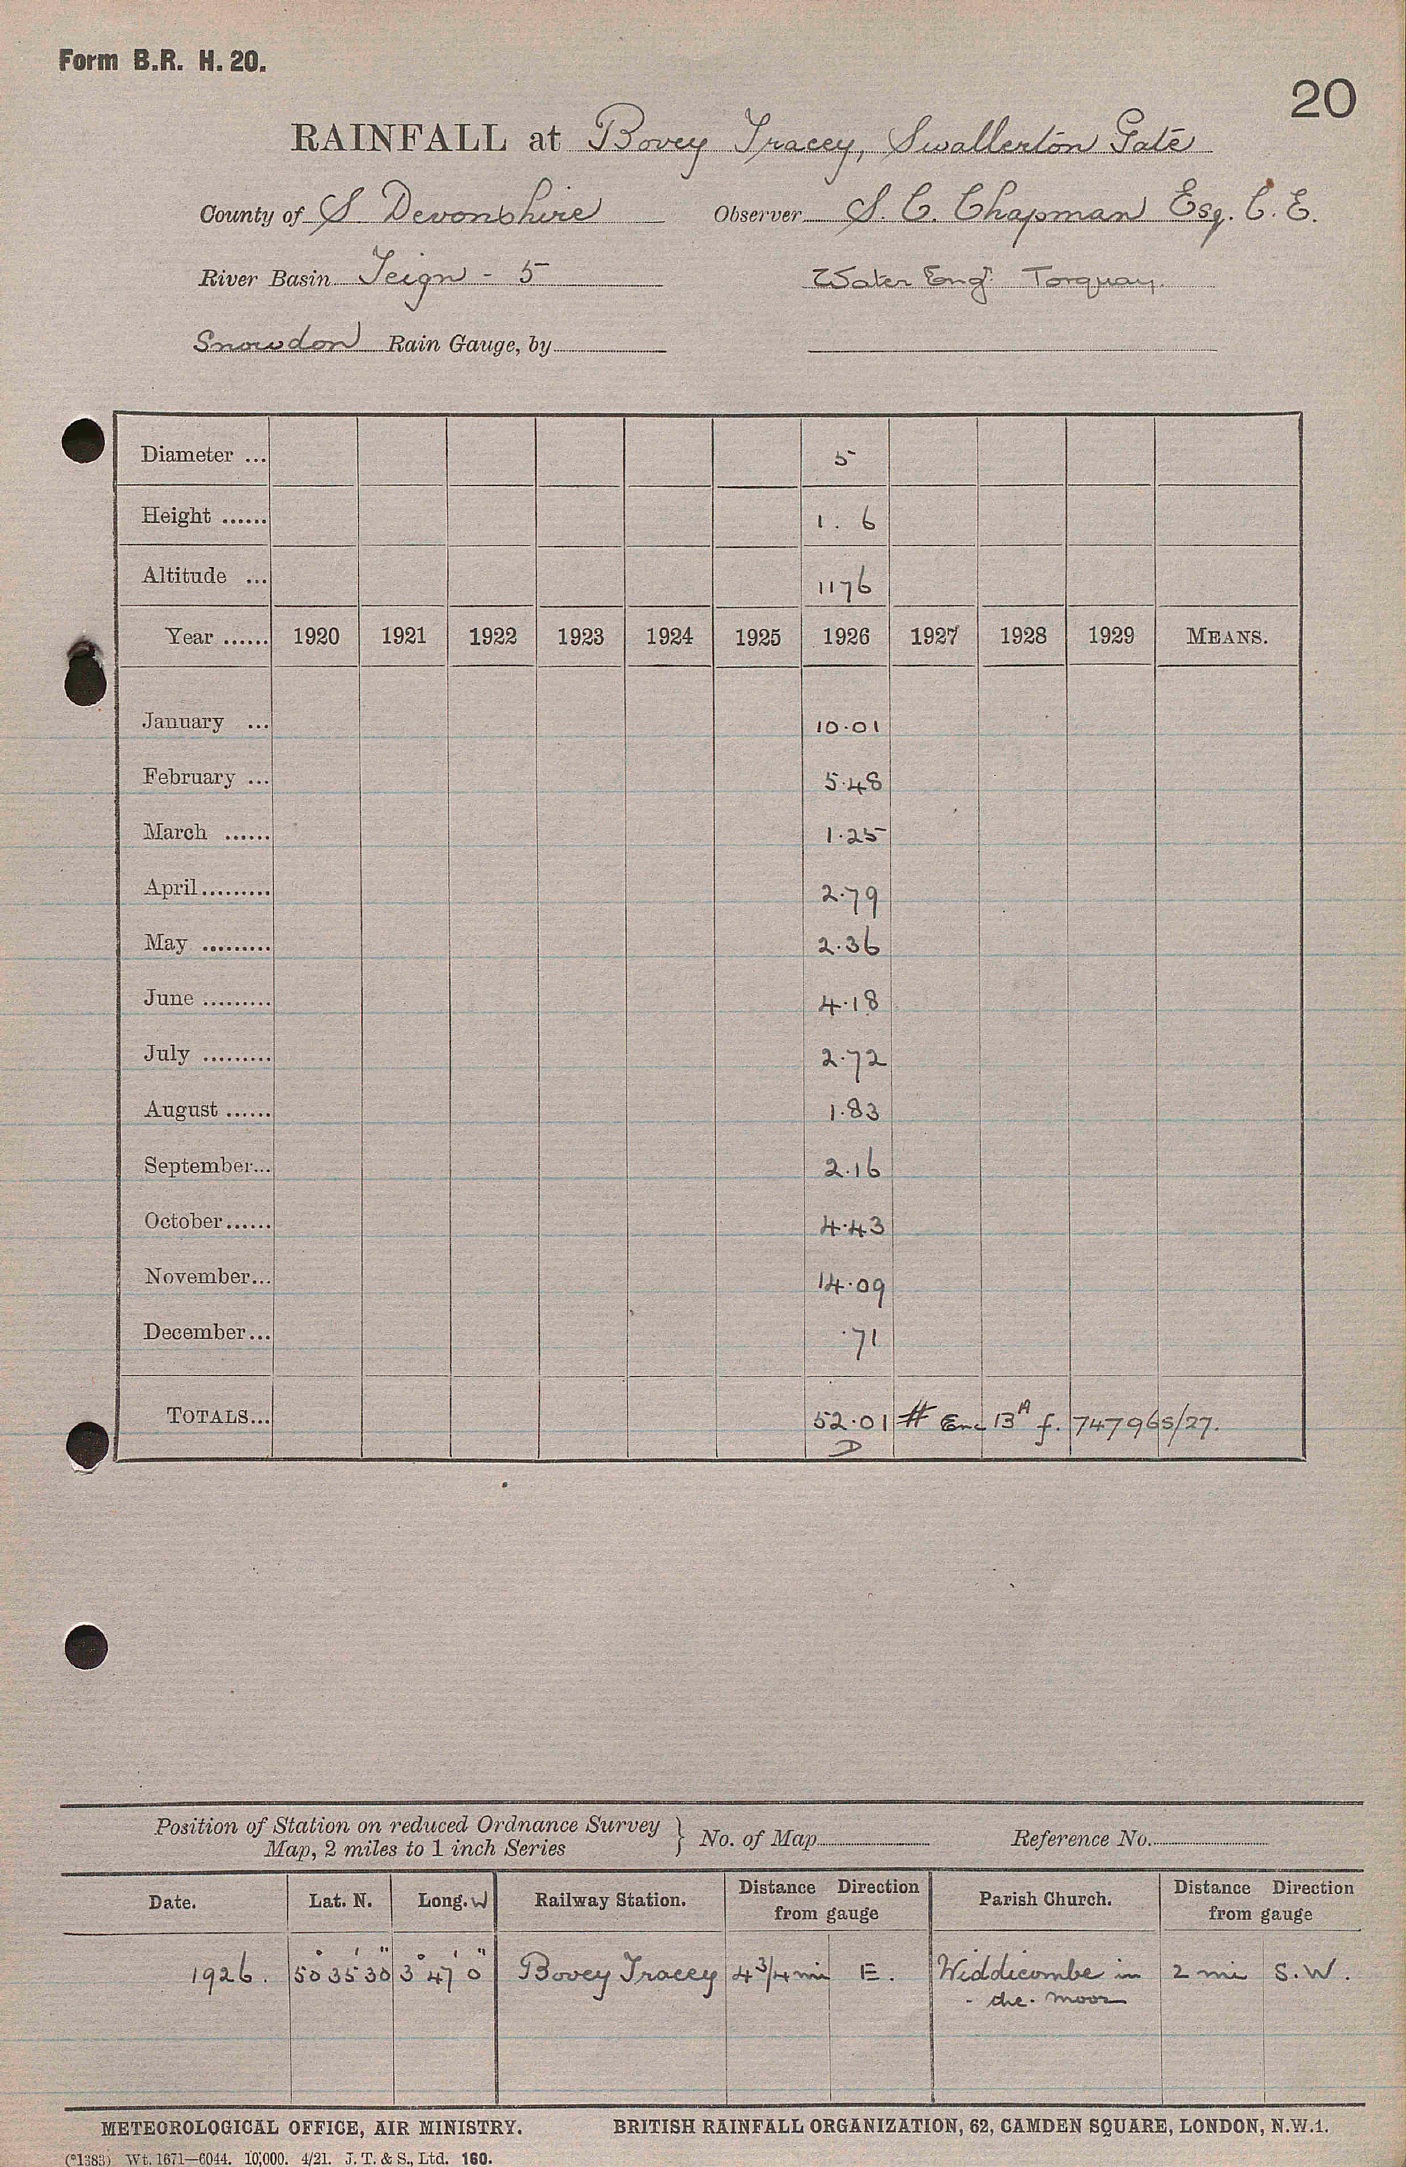 Form B.R. H. 20.
20
RAINFALL at Bovey Tracey, Swallerton Gate
County of S. Devonshire Observer S. C. Chapman Esq. C. E.
River Basin Teign - 5 Water Engr. Torquay.
Snowdon Rain Gauge, by
Diameter ... 5
Height ...... 1. 6
Altitude ... 1176
Year ...... 1920 1921 1922 1923 1924 1925 1926 1927 1928 1929 MEANS.
January ... 10.01
February ... 5.48
March ...... 1.25
April......... 2.79
May ......... 2.36
June ......... 4.18
July ......... 2.72
August ...... 1.83
September... 2.16
October...... 4.43
November... 14.09
December... .71
TOTALS... 52.01 # Enc 13A f. 747965/27.
D
Position of Station on reduced Ordnance Survey
Map, 2 miles to 1 inch Series } No. of Map Reference No.
Date. Lat. N. Long. W Railway Station. Distance Direction from gauge Parish Church. Distance Direction from gauge
1926. 50° 35' 30" 3° 47' 0" Bovey Tracey 4 3/4 mi E. Widdicombe in 2 mi S.W.
- the - moor
METEOROLOGICAL OFFICE, AIR MINISTRY. BRITISH RAINFALL ORGANIZATION, 62, CAMDEN SQUARE, LONDON, N.W.1.
(*1383) Wt. 1671—6044. 10,000. 4/21. J. T. & S., Ltd. 160.